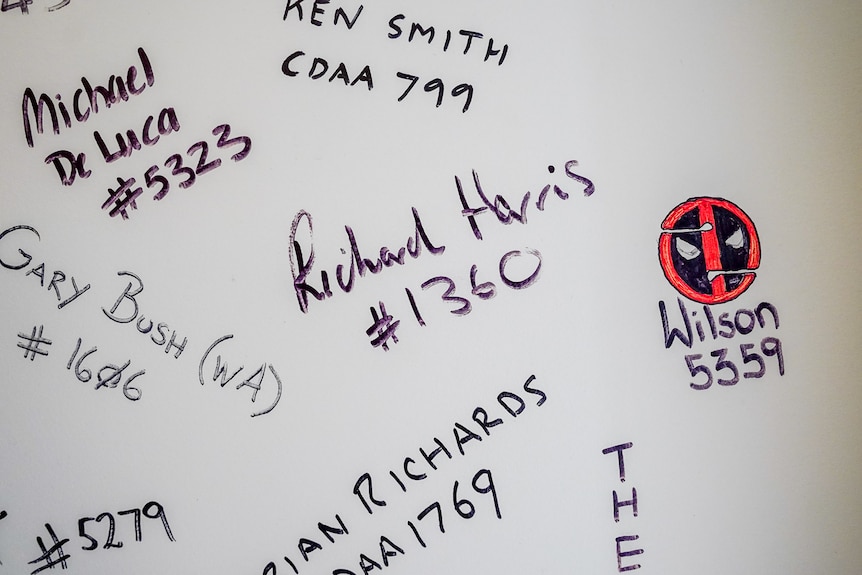 KEN SMITH
CDAA 799
Michael
De Luca
#5323
Richard Harris
#1360
GARY BUSH (WA)
# 1606
Wilson
5359
RICHARDS
1769
#5279
THE